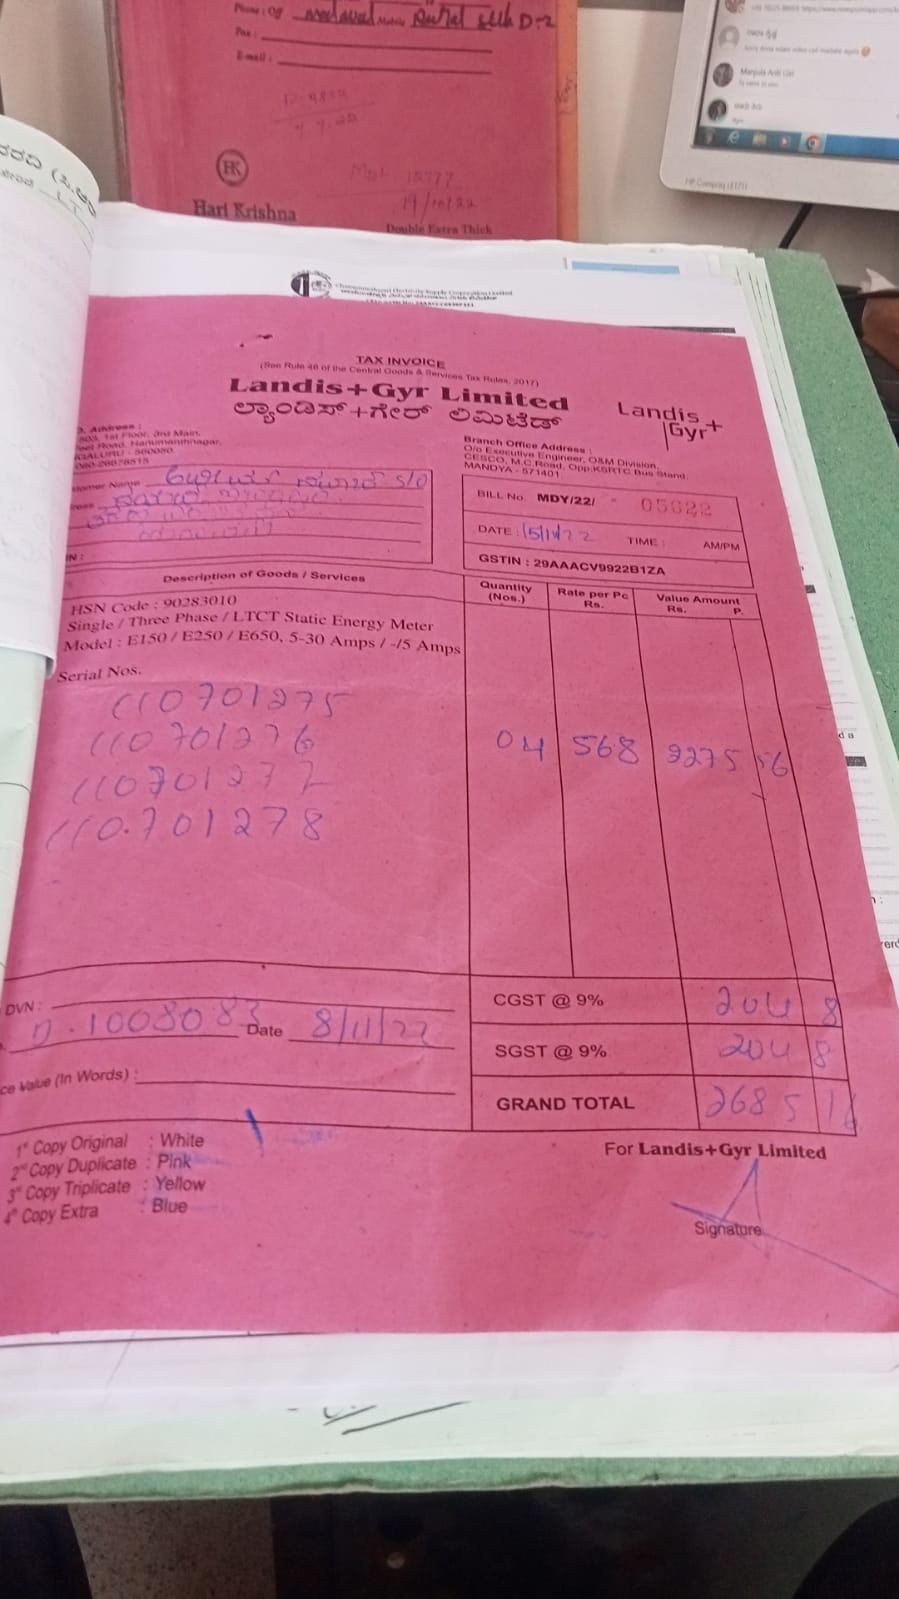 Phone : Off
Mobile Rural
Fax :
E-mail :
19/10/22
HK
Hari Krishna
Double Extra Thick
HP Compaq LE1711
Manjula Anti Girl
Chamundeshwari Electricity Supply Corporation Limited
TAX INVOICE
(See Rule 46 of the Central Goods & Services Tax Rules, 2017)
Landis+Gyr Limited
ಲ್ಯಾಂಡಿಸ್+ಗೇರ್ ಲಿಮಿಟೆಡ್
Landis
Gyr+
Address :
1st Floor, 3rd Main,
Road, Hanumanthnagar,
560050.
080-26676515
Branch Office Address :
O/o Executive Engineer, O&M Division,
CESCO, M.C.Road, Opp:KSRTC Bus Stand,
MANDYA - 571401
Name S/O
BILL No. MDY/22/ 05622
DATE : 15/11/22 TIME : AM/PM
GSTIN : 29AAACV9922B1ZA
Description of Goods / Services
Quantity (Nos.)
Rate per Pc Rs.
Value Amount Rs. P.
HSN Code : 90283010
Single / Three Phase / LTCT Static Energy Meter
Model : E150 / E250 / E650, 5-30 Amps / -/5 Amps
Serial Nos.
110701275
110701276
110701277
110.701278
04 568 2275 56
CGST @ 9% 204 8
SGST @ 9% 204 8
GRAND TOTAL 2685 16
DVN :
D.1008083 Date 8/11/22
Value (In Words) :
1st Copy Original : White
2nd Copy Duplicate : Pink
3rd Copy Triplicate : Yellow
4th Copy Extra : Blue
For Landis+Gyr Limited
Signature